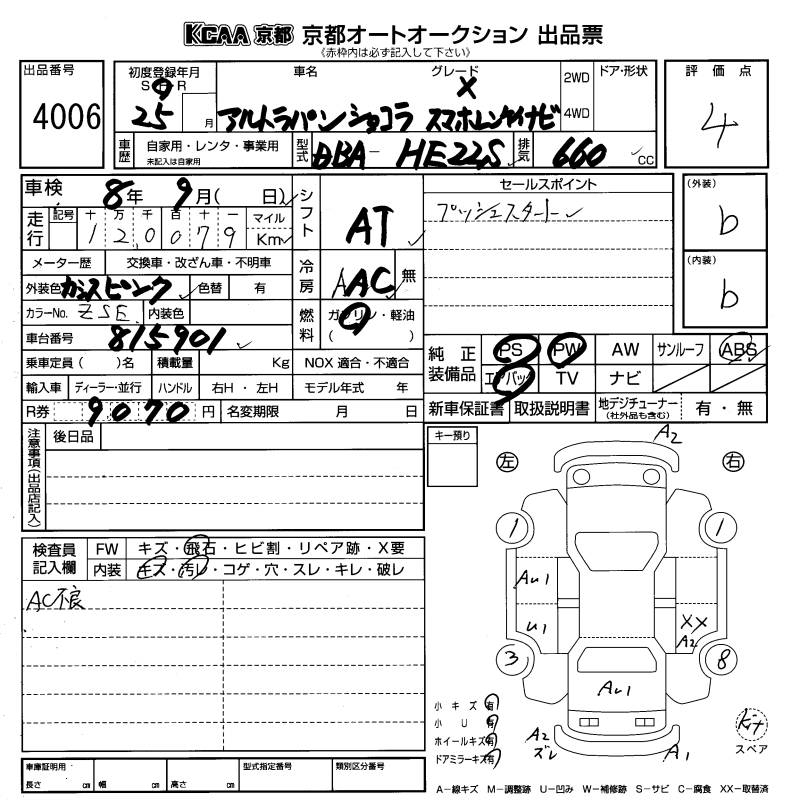 KCAA 京都 京都オートオークション 出品票
《赤枠内は必ず記入して下さい》
出品番号 4006
初度登録年月 S・H・R 25 月
車名 グレード X
アルトラパン ショコラ スマホレンケイナビ
2WD 4WD
ドア・形状
評価点 4
車歴 自家用・レンタ・事業用 未記入は自家用
型式 DBA-HE22S
排気 660 CC
車検 8年 9月( 日)
シフト AT
走行 記号 十 万 千 百 十 一 マイル Km
1 2 0 0 7 9
メーター歴 交換車・改ざん車・不明車
冷房 A AC 無
外装色 カシスピンク 色替 有
カラーNo. ZSE 内装色
燃料 ガソリン・軽油 ( )
車台番号 815901
乗車定員( )名 積載量 Kg NOX 適合・不適合
輸入車 ディーラー・並行 ハンドル 右H・左H モデル年式 年
R券 9070円 名変期限 月 日
セールスポイント
プッシュスタート
(外装) b
(内装) b
純正装備品 PS PW AW サンルーフ ABS
エアバック TV ナビ
新車保証書 取扱説明書 地デジチューナー (社外品も含む) 有・無
注意事項(出品店記入)
後日品
キー預り
検査員記入欄 FW キズ・飛石・ヒビ割・リペア跡・X要
内装 キズ・汚レ・コゲ・穴・スレ・キレ・破レ
AC不良
左 右
A2
1 1
AU1
U1
XX
A2
3 8
AU1
A2
ズレ
A1
小キズ 有
小U 有
ホイールキズ 有
ドアミラーキズ 有
Kit
スペア
車庫証明用 長さ cm 幅 cm 高さ cm
型式指定番号
類別区分番号
A-線キズ M-調整跡 U-凹み W-補修跡 S-サビ C-腐食 XX-取替済